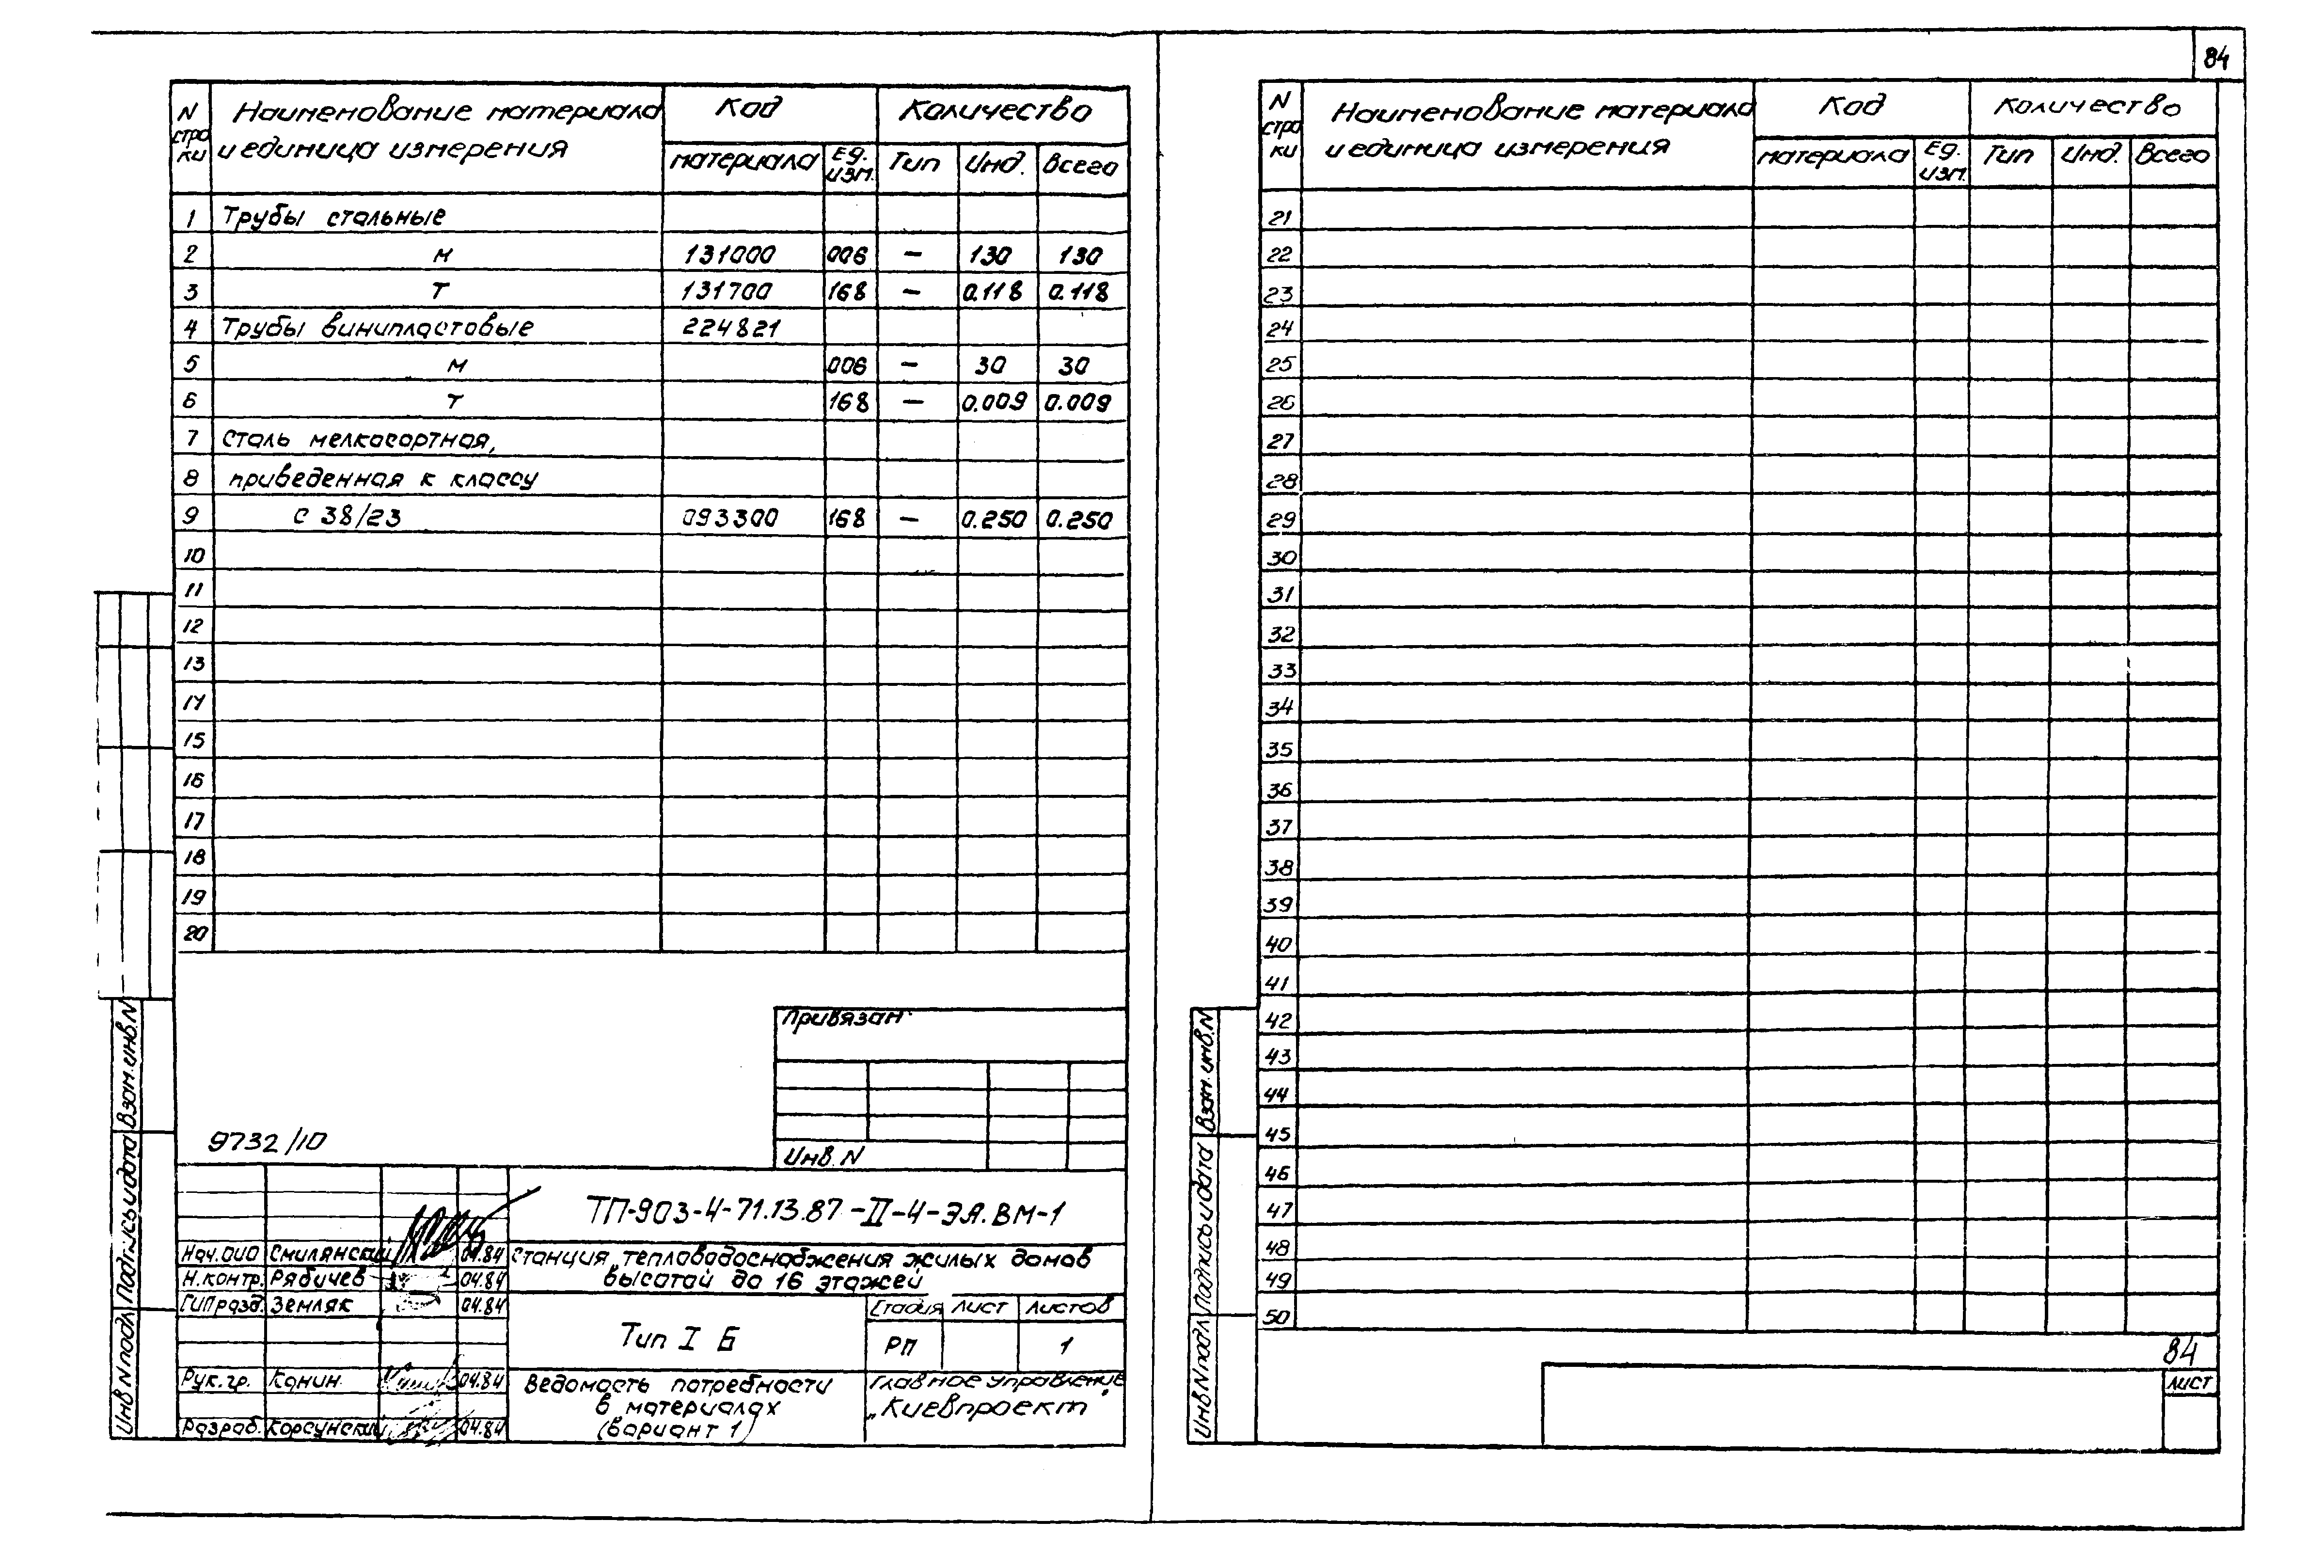 84
N стро ки | Наименование материала и единица измерения | Код | Количество
материала | Ед. изм. | Тип | Инд. | Всего
1 Трубы стальные
2 м 131000 006 — 130 130
3 т 131700 168 — 0.118 0.118
4 Трубы винипластовые 224821
5 м 006 — 30 30
6 т 168 — 0.009 0.009
7 Сталь мелкосортная,
8 приведенная к классу
9 С 38/23 093300 168 — 0.250 0.250
10
11
12
13
14
15
16
17
18
19
20
Привязан
Инв. N
9732/10
ТП-903-4-71.13.87-II-4-ЭА.ВМ-1
Нач. ОИО Смилянский 04.84
Н.контр. Рябичев 04.84
ГИПразд. Земляк 04.84
Рук.гр. Канин 04.84
Разраб. Корсунский 04.84
Станция тепловодоснабжения жилых домов
высотой до 16 этажей
Тип I Б
Стадия Лист Листов
РП 1
Ведомость потребности
в материалах
(вариант 1)
Главное управление
„Киевпроект"
Взам. инв. N
Подпись и дата
Инв N подл
N стро ки | Наименование материала и единица измерения | Код | Количество
материала | Ед. изм. | Тип | Инд. | Всего
21
22
23
24
25
26
27
28
29
30
31
32
33
34
35
36
37
38
39
40
41
42
43
44
45
46
47
48
49
50
Взам. инв. N
Подпись и дата
Инв N подл
84
Лист